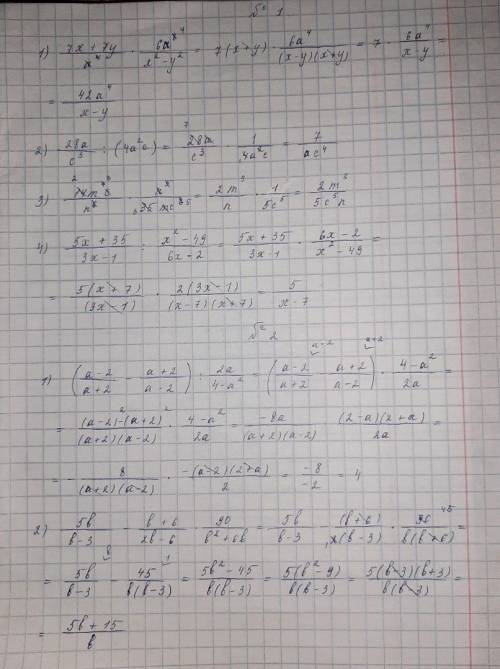 № 1
1) (7x + 7y)/x⁴ · 6a⁴x⁴/(x² − y²) = 7(x + y) · 6a⁴/((x − y)(x + y)) = 7 · 6a⁴/(x − y) =
= 42a⁴/(x − y)
2) 28a/c³ : (4a²c) = 28a/c³ · 1/4a²c = 7/ac⁴
3) · = 2m³/n · 1/5c⁵ = 2m³/5c⁵n
4) (5x + 35)/(3x − 1) : (x² − 49)/(6x − 2) = (5x + 35)/(3x − 1) · (6x − 2)/(x² − 49) =
= 5(x + 7)/(3x − 1) · 2(3x − 1)/((x − 7)(x + 7)) = 5/(x − 7)
№ 2
a − 2 a + 2
1) ((a − 2)/(a + 2) − (a + 2)/(a − 2)) : 2a/(4 − a²) = ((a − 2)/(a + 2) − (a + 2)/(a − 2)) · (4 − a²)/2a =
= ((a − 2)² − (a + 2)²)/((a + 2)(a − 2)) · (4 − a²)/2a = −8a/((a + 2)(a − 2)) (2 − a)(2 + a)/2a =
= − 8/((a + 2)(a − 2)) · −(a − 2)(2 + a)/2 = −8/−2 = 4
2) 5b/(b − 3) − (b + 6)/(2b − 6) · 90/(b² + 6b) = 5b/(b − 3) − (b + 6)/2(b − 3) · 90 45/b(b + 6) =
= 5b/(b − 3) − 45/b(b − 3) = (5b² − 45)/b(b − 3) = 5(b² − 9)/b(b − 3) = 5(b − 3)(b + 3)/b(b − 3) =
= (5b + 15)/b